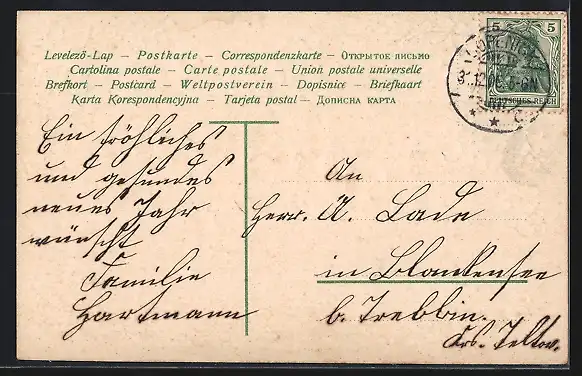 Levelező-Lap — Postkarte — Correspondenzkarte — Открытое письмо
Cartolina postale — Carte postale — Union postale universelle
Brefkort — Postcard — Weltpostverein — Dopisnice — Briefkaart
Karta Korespondencyjna — Tarjeta postal — Дописна карта
5 5
DEUTSCHES REICH
Ein fröhliches
und gesundes
neues Jahr
wünscht
Familie
Hartmann
An
Herr. A. Lade
in Blankensee
b. Trebbin.
Krs. Teltow.